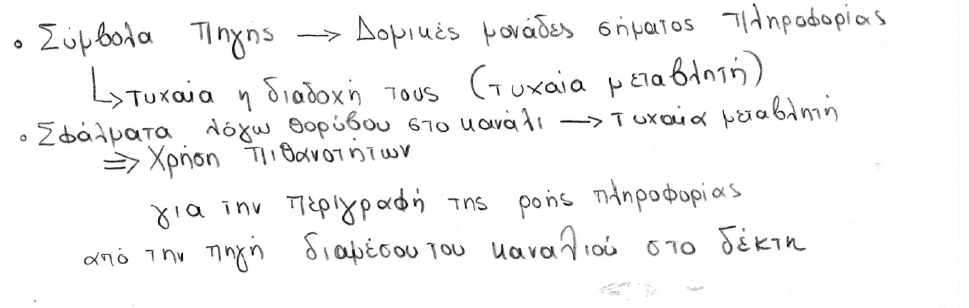 • Σύμβολα Πηγής → Δομικές μονάδες σήματος πληροφορίας
↳ τυχαία η διαδοχή τους (τυχαία μεταβλητή)
• Σφάλματα λόγω θορύβου στο κανάλι → τυχαία μεταβλητή
⇒ Χρήση πιθανοτήτων
για την περιγραφή της ροής πληροφορίας
από την πηγή διαμέσου του καναλιού στο δέκτη